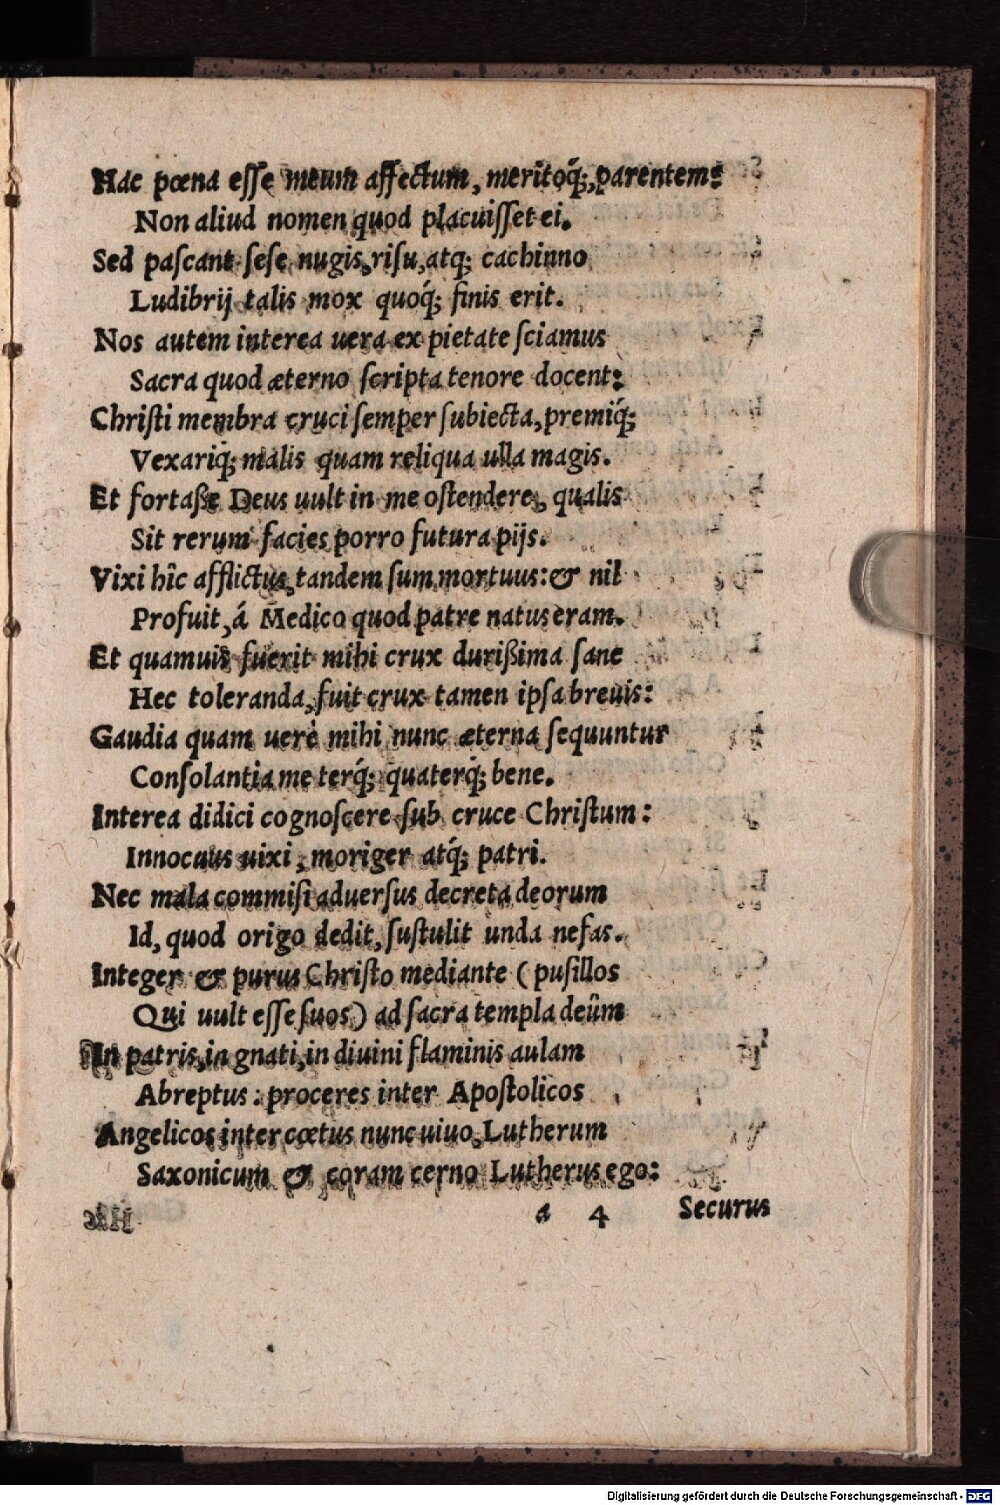 Hac pœna eſſe meum affectum, meritoq́;, parentem:
Non aliud nomen quod placuiſſet ei.
Sed paſcant ſeſe nugis, riſu, atq; cachinno
Ludibrij talis mox quoq́; finis erit.
Nos autem interea uera ex pietate ſciamus
Sacra quod æterno ſcripta tenore docent:
Chriſti membra cruci ſemper ſubiecta, premiq́;
Vexariq́; malis quam reliqua ulla magis.
Et fortaſſe Deus uult in me oſtendere, qualis
Sit rerum facies porro futura pijs.
Vixi hîc afflictus, tandem ſum mortuus: & nil
Profuit, á Medico quod patre natus eram.
Et quamuis fuerit mihi crux durißima ſane
Hec toleranda, fuit crux tamen ipſa breuis:
Gaudia quam uerè mihi nunc æterna ſequuntur
Conſolantia me terq́; quaterq́; bene.
Interea didici cognoſcere ſub cruce Chriſtum:
Innocuus uixi, moriger atq́; patri.
Nec mala commiſi aduerſus decreta deorum
Id, quod origo dedit, ſuſtulit unda nefas.
Integer & purus Chriſto mediante (puſillos
Qui uult eſſe ſuos) ad ſacra templa deûm
In patris, in gnati, in diuini flaminis aulam
Abreptus: proceres inter Apoſtolicos
Angelicos inter cœtus nunc uiuo, Lutherum
Saxonicum & coram cerno Lutherus ego:
a 4 Securus
Digitalisierung gefördert durch die Deutsche Forschungsgemeinschaft - DFG